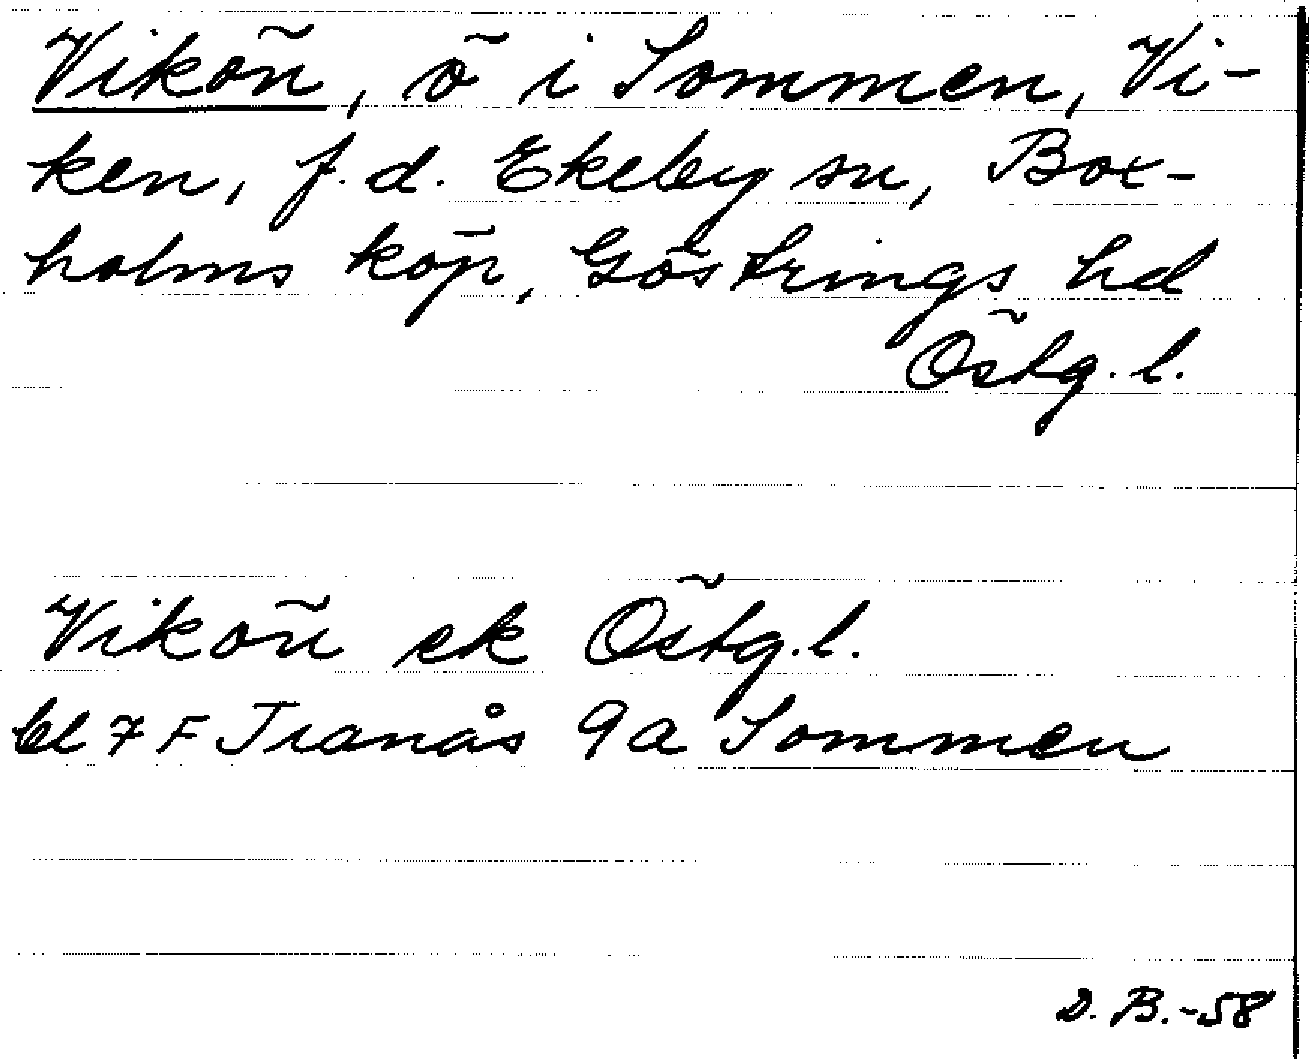 Vikön, ö i Sommen, Vi-
ken, f.d. Ekeby sn, Box-
holms köp, Göstrings hd
Östg.l.
Vikön ek Östg.l.
bl 7 F Tranås 9a Sommen
D.B.-58